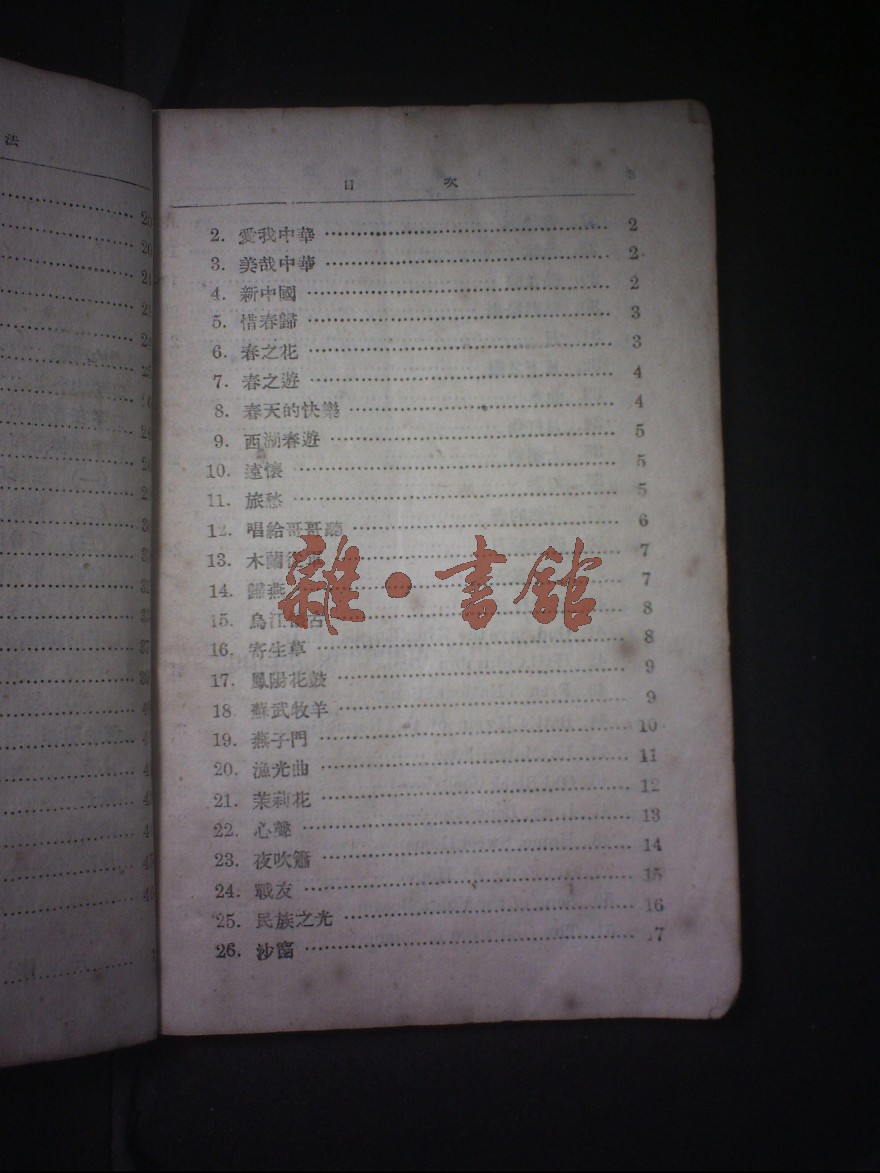 法
目 次
2. 愛我中華 2
3. 美哉中華 2
4. 新中國 2
5. 惜春歸 3
6. 春之花 3
7. 春之遊 4
8. 春天的快樂 4
9. 西湖春遊 5
10. 遠懷 5
11. 旅愁 5
12. 唱給哥哥聽 6
13. 木蘭 7
14. 歸燕 7
15. 烏江 古 8
16. 寄生草 8
17. 鳳陽花鼓 9
18 蘇武牧羊 9
19. 燕子門 10
20. 漁光曲 11
21. 茉莉花 12
22. 心聲 13
23. 夜吹簫 14
24. 戰友 15
25. 民族之光 16
26. 沙窩 17
雜·書館